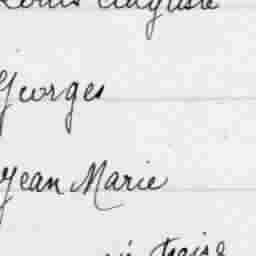 Louis Auguste
Georges
Jean Marie